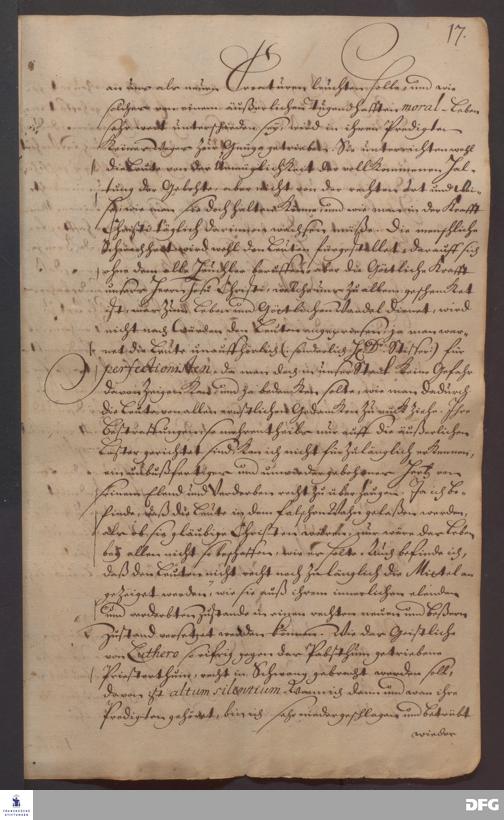 17.
an uns als neuen Creaturen leuchten solle, und wie
solches von einem äußerlichen tugendhafften moral-Leben
sehr weit unterschieden sey, wird in ihren Predigten
keines weges zur Gnüge getrieben. Sie unterrichten wohl
die Leute von der Unmüglichkeit der vollkommenen Hal-
tung der Gebothe, aber nicht von der rechten Art und
wie man sie doch halten könne, und wie man in der Krafft
Christi täglich darinnen wachsen müße. Die menschliche
Schwachheit wird wohl den Leuten fürgestellet, darauff sich
ohne dem alle Heuchler beruffen, aber die Göttliche Krafft
unsers Herrn Jesu Christi, welche uns zu allem geschencket
ist, was zum Leben und Göttlichen Wandel dienet, wird
nicht nach Würden den Leuten angepriesen; ja man war-
net die Leute unauffhörlich (: sonderlich H. D. :) für
perfectionisten, da man doch in unser Stadt keine Gefahr
davon zeigen kan, und ja bedencken solte, wie man dadurch
die Leute von allen ernstlichen Gedancken zurück ziehe. Ihre
Bestraffungen, so mehrentheils nur auff die äußerlichen
Laster gerichtet sind, kan ich nicht für zulänglich erkennen,
ein unbußfertiges und unwiedergebohrnes Hertz von
seinem Elend und Verderben recht zu überzeugen. Ja ich be-
finde, daß die Leute in dem falschen Wahn gelaßen werden,
als ob sie gläubige Christen wären, nur wäre das Leben
bey allen nicht so beschaffen, wie es solte. Auch befinde ich,
daß den Leuten nicht recht noch zulänglich die Mittel an-
gezeiget werden, wie sie auß ihrem innerlichen elenden
und verderbten Zustande in einen rechten neuen und beßern
Zustand versetzet werden können. Wie das Geistliche
von Luthero so eifrig gegen das Pabsthum getriebene
Priesterthum, recht in Schwang gebracht werden soll,
davon ist altum silentium. Wenn ich dann und wan ihre
Predigten gehöret, bin ich sehr niedergeschlagen und betrübt
wieder
FRANCKESCHE
STIFTUNGEN
DFG